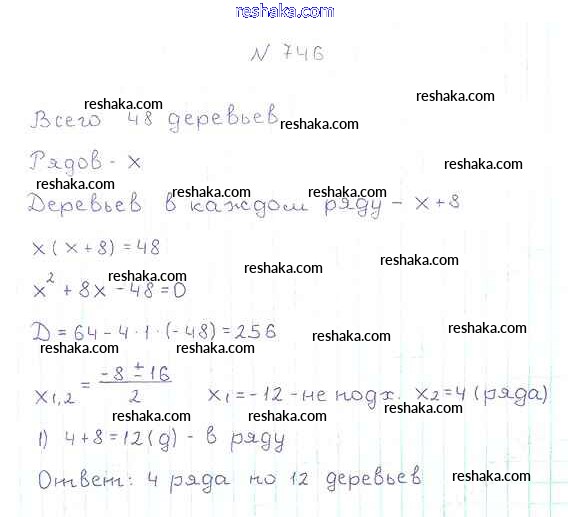 reshaka.com
N 746
reshaka.com
reshaka.com
Всего 48 деревьев
reshaka.com
Рядов - x
reshaka.com
reshaka.com reshaka.com reshaka.com
Деревьев в каждом ряду - x+8
x(x+8)=48
reshaka.com reshaka.com
reshaka.com
x² + 8x - 48 = 0
D = 64 - 4·1·(-48) = 256
reshaka.com reshaka.com
reshaka.com
x₁,₂ = (-8 ± 16)/2 x₁ = -12 - не подх. x₂ = 4 (ряда)
reshaka.com reshaka.com
1) 4+8=12(д) - в ряду
reshaka.com reshaka.com
Ответ: 4 ряда по 12 деревьев
reshaka.com